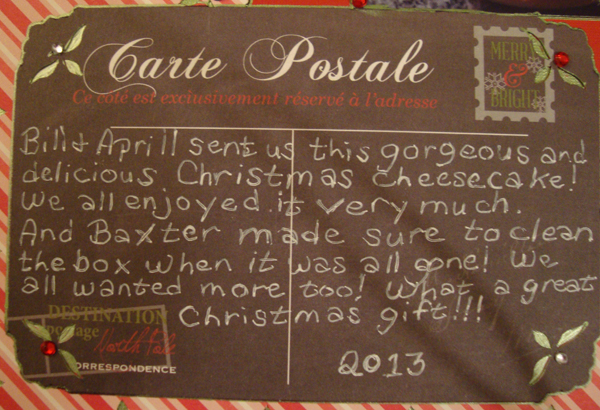 Carte Postale
Ce côté est exclusivement réservé à l'adresse
MERRY
&
BRIGHT
Bill & Aprill sent us this gorgeous and
delicious Christmas cheesecake!
We all enjoyed it very much.
And Baxter made sure to clean
the box when it was all gone! We
all wanted more too! What a great
Christmas gift!!!
2013
DESTINATION
postage
North Pole
CORRESPONDENCE